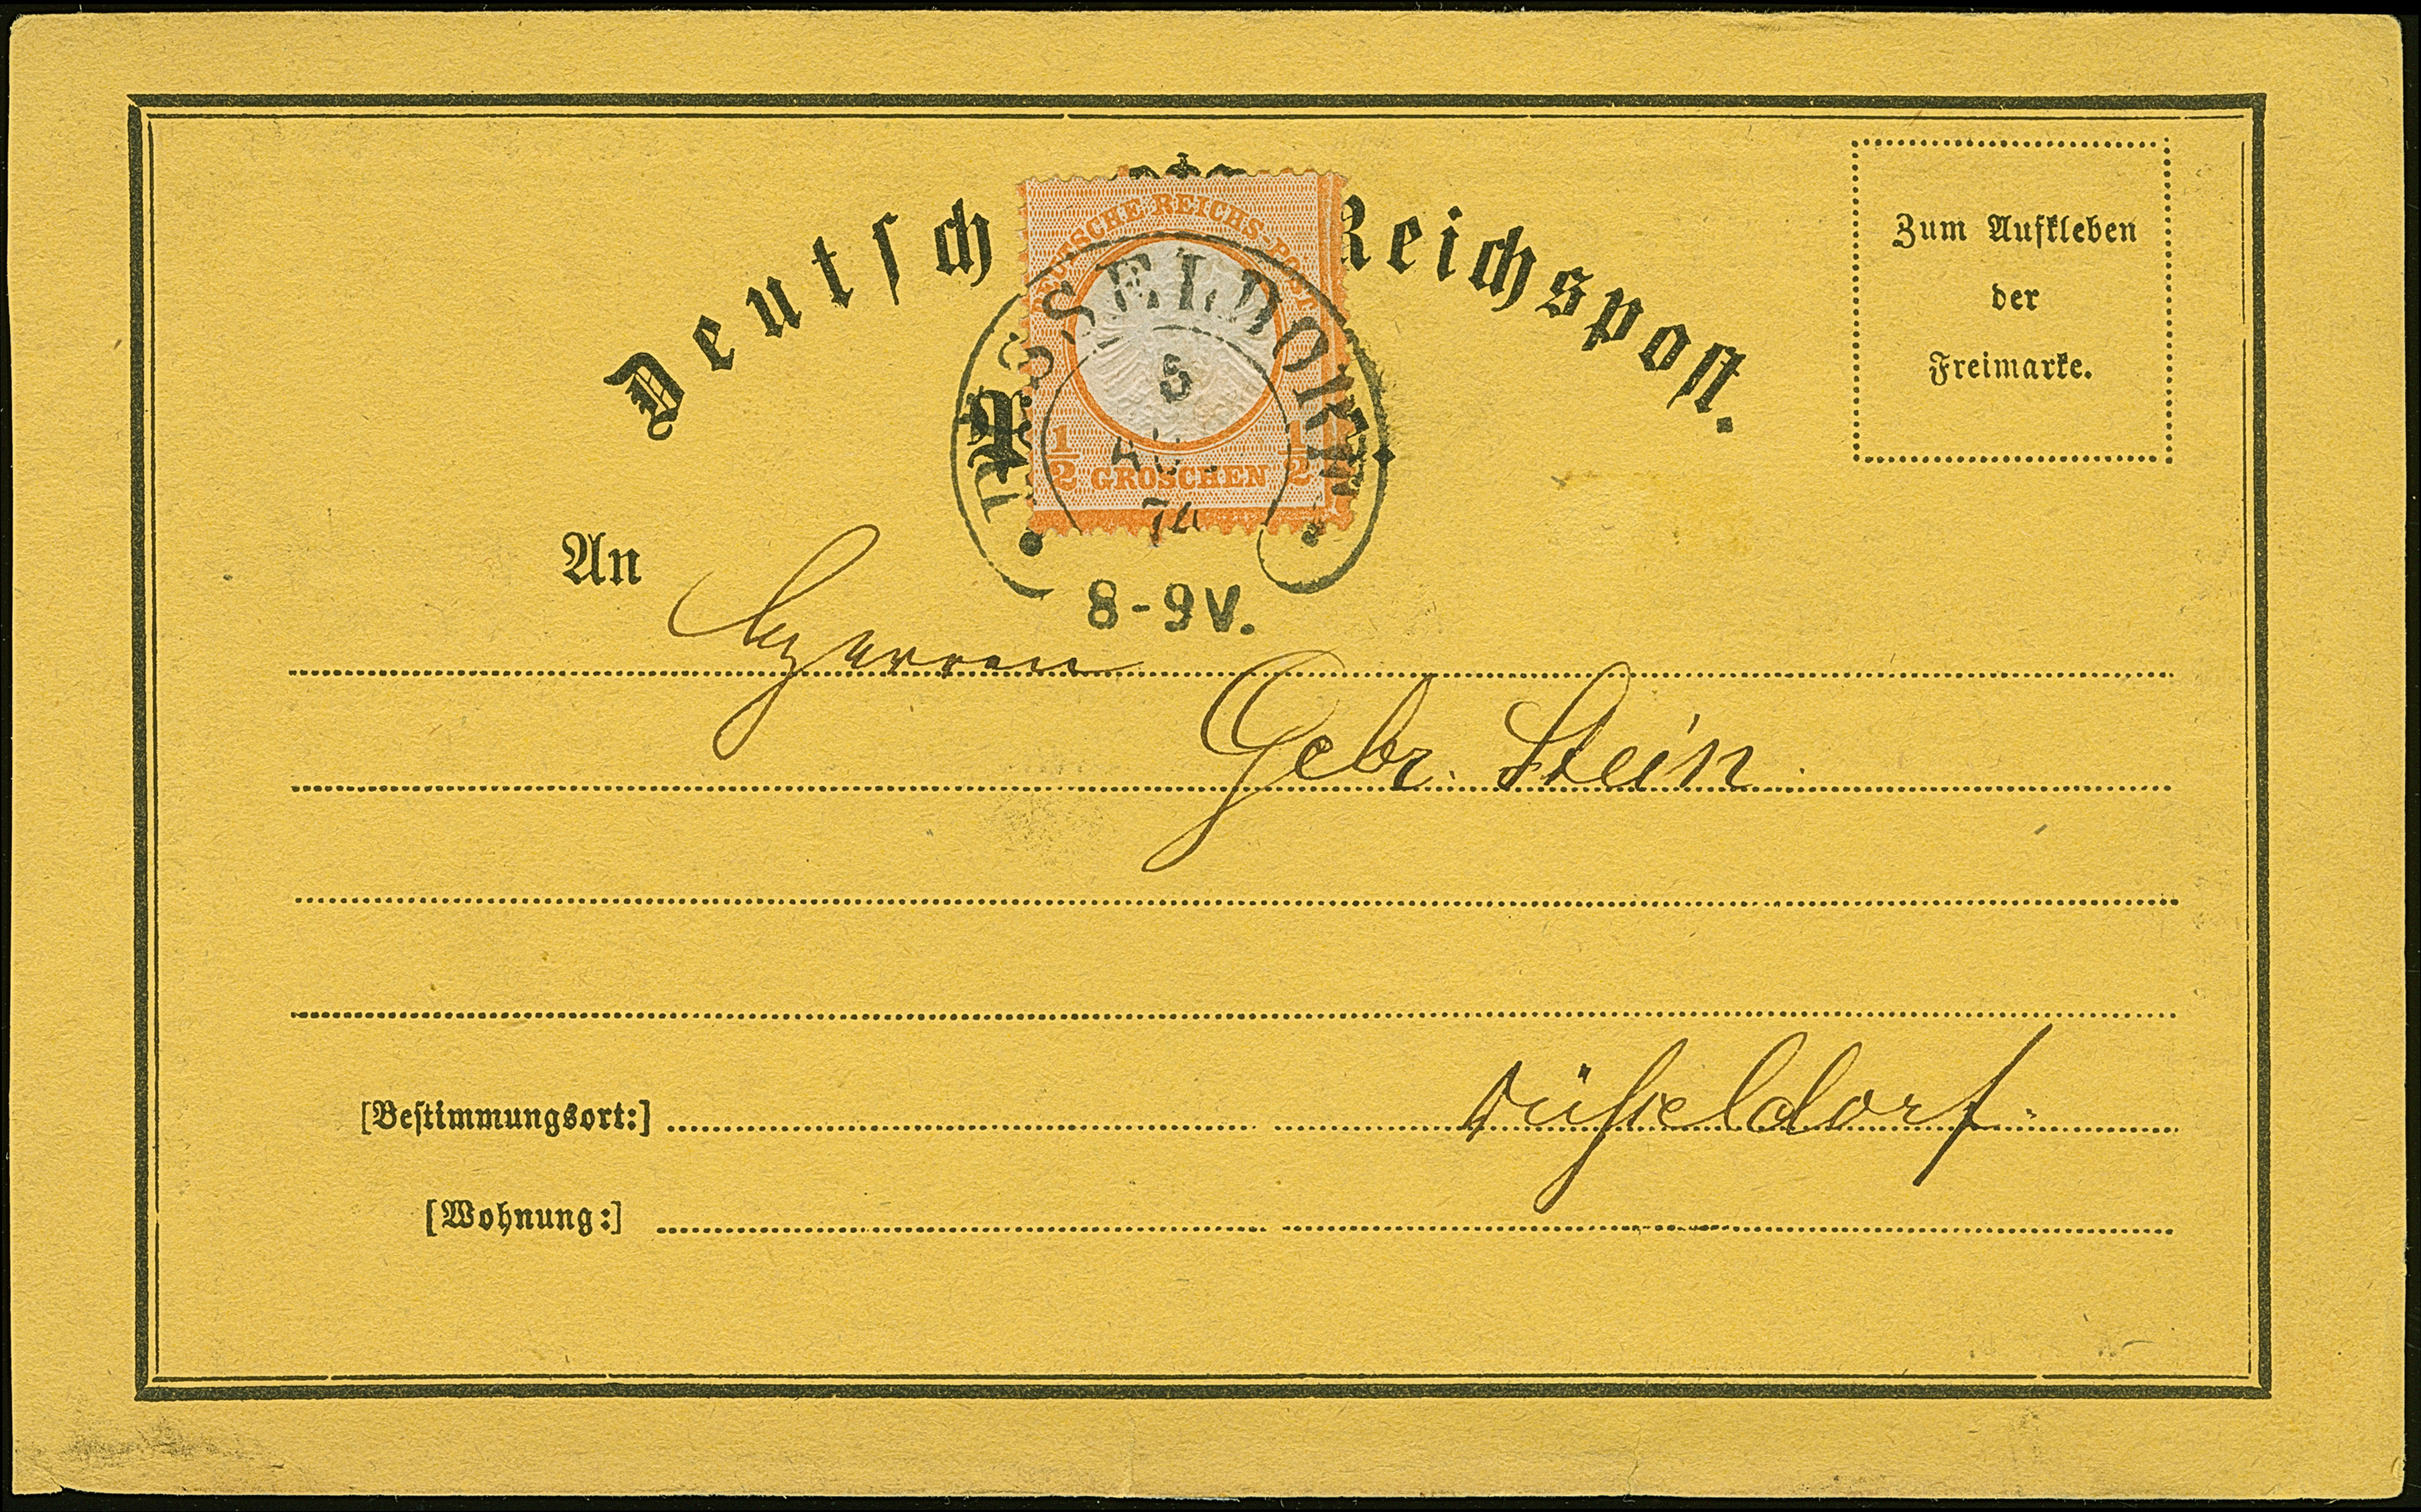 Deutsch Reichspost.
Zum Aufkleben
der
Freimarke.
DEUTSCHE REICHS-POST
1/2 GROSCHEN 1/2
DÜSSELDORF
5
AU
74
8-9V.
An
Herren
Gebr. Stein
[Bestimmungsort:] Düsseldorf.
[Wohnung:]